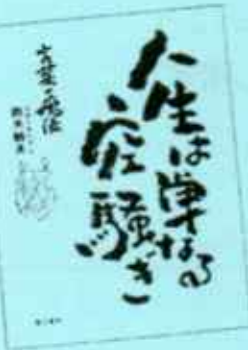 人生は単なる
空騒ぎ
言葉の魔法
鈴木敏夫